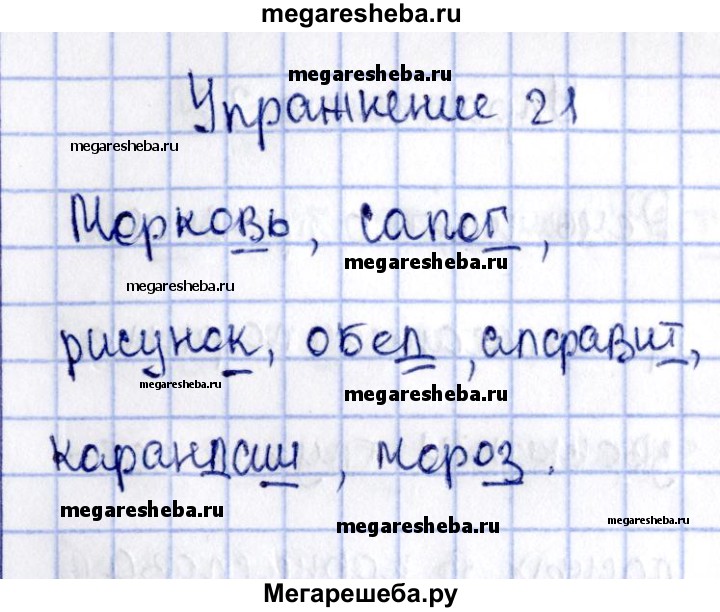 megaresheba.ru
megaresheba.ru
Упражнение 21
megaresheba.ru
Морковь, сапог,
megaresheba.ru
megaresheba.ru
рисунок, обед, алфавит,
megaresheba.ru
megaresheba.ru
карандаш, мороз.
megaresheba.ru
megaresheba.ru
megaresheba.ru
Мегарешеба.ру